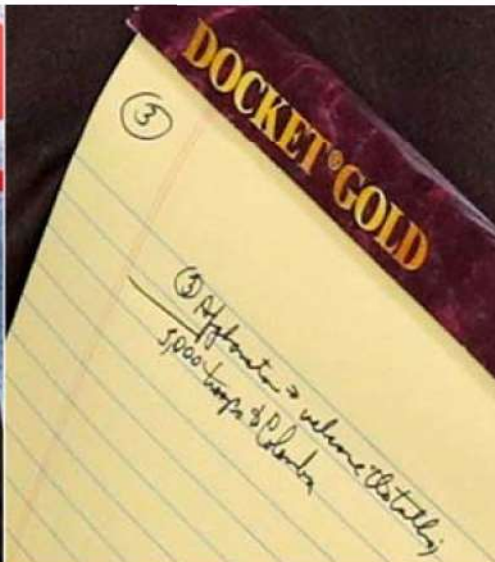 DOCKET® GOLD
③
① Afghanistan → welcome the talks;
5,000 troops to Colombia